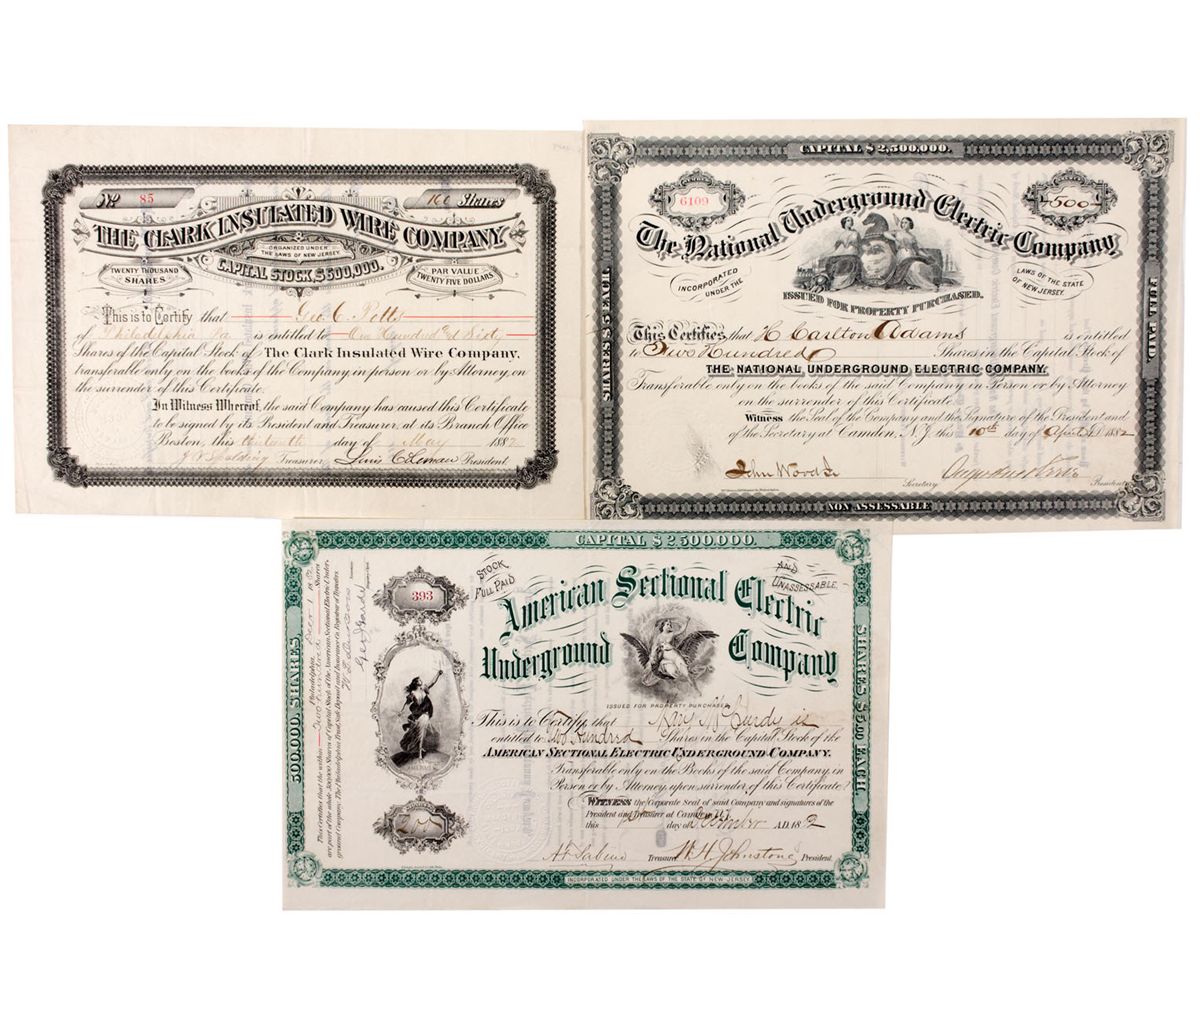 No 85
160 Shares
THE CLARK INSULATED WIRE COMPANY
ORGANIZED UNDER
THE LAWS OF NEW JERSEY.
TWENTY THOUSAND
SHARES
CAPITAL STOCK, $500,000.
PAR VALUE
TWENTY FIVE DOLLARS
This is to Certify that Geo. C. Potts
of Philadelphia Pa is entitled to One Hundred & Sixty
Shares of the Capital Stock of The Clark Insulated Wire Company,
transferable only on the books of the Company in person or by Attorney, on
the surrender of this Certificate.
In Witness Whereof, the said Company has caused this Certificate
to be signed by its President and Treasurer, at its Branch Office
Boston, this thirteenth day of May 1882
Spalding Treasurer. President
CAPITAL $2,500,000.
6109
500
The National Underground Electric Company,
INCORPORATED
UNDER THE
LAWS OF THE STATE
OF NEW JERSEY.
ISSUED FOR PROPERTY PURCHASED.
This Certifies that H Carlton Adams is entitled
to Five Hundred Shares in the Capital Stock of
THE NATIONAL UNDERGROUND ELECTRIC COMPANY.
Transferable only on the books of the said Company in Person or by Attorney
on the surrender of this Certificate.
Witness the Seal of the Company and the Signature of the President and
of the Secretary at Camden, N.J. this 10th day of April 1882
John Wood Jr
Secretary. President
SHARES $5 EACH.
FULL PAID.
NON ASSESSABLE
CAPITAL $2,500,000.
500,000. SHARES.
SHARES, $5.00 EACH.
393
STOCK
FULL PAID
AND
UNASSESSABLE.
American Sectional Electric
Underground Company
ISSUED FOR PROPERTY PURCHASED
This is to Certify, that McCurdy is
entitled to Two Hundred Shares in the Capital Stock of the
AMERICAN SECTIONAL ELECTRIC UNDERGROUND COMPANY.
Transferable only on the Books of the said Company, in
Person or by Attorney, upon surrender of this Certificate.
WITNESS, the Corporate Seal of said Company and signatures of the
President and Treasurer at Camden N.J.
this 1st day of December A.D. 1882
200
Treasurer W.H. Johnstone President
INCORPORATED UNDER THE LAWS OF THE STATE OF NEW JERSEY.